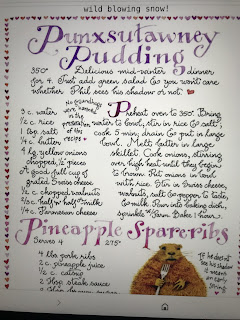 wild blowing snow!
Punxsutawney
Pudding
350° Delicious mid-winter dinner
for 4. Just add green salad & you won't care
whether Phil sees his shadow or not
3 c. water
½ c. rice
1 tsp. salt
¼ lb. butter
4 lg. yellow onions
chopped, ½" pieces
A good full cup of
grated Swiss cheese
½ c. chopped walnuts
⅔ c. half n' half milk
¼ c. Parmesan cheese
No groundhogs
were harmed
in the
preparation
of this
recipe
Preheat oven to 350°. Bring
water to bowl, stir in rice & salt;
cook 5 min; drain & put in large
bowl. Melt butter in large
skillet. Cook onions, stirring
over high heat until they begin
to brown. Put onions in bowl
with rice. Stir in Swiss cheese,
walnuts, salt & pepper to taste,
& milk. Pour into baking dish,
sprinkle w/ Parm. Bake 1 hour.
Pineapple Spareribs
Serves 4 275°
4 lbs. pork ribs
2 c. pineapple juice
½ c. catsup
2 Tbsp. steak sauce
If he does not
see his shadow
it means
an early
spring